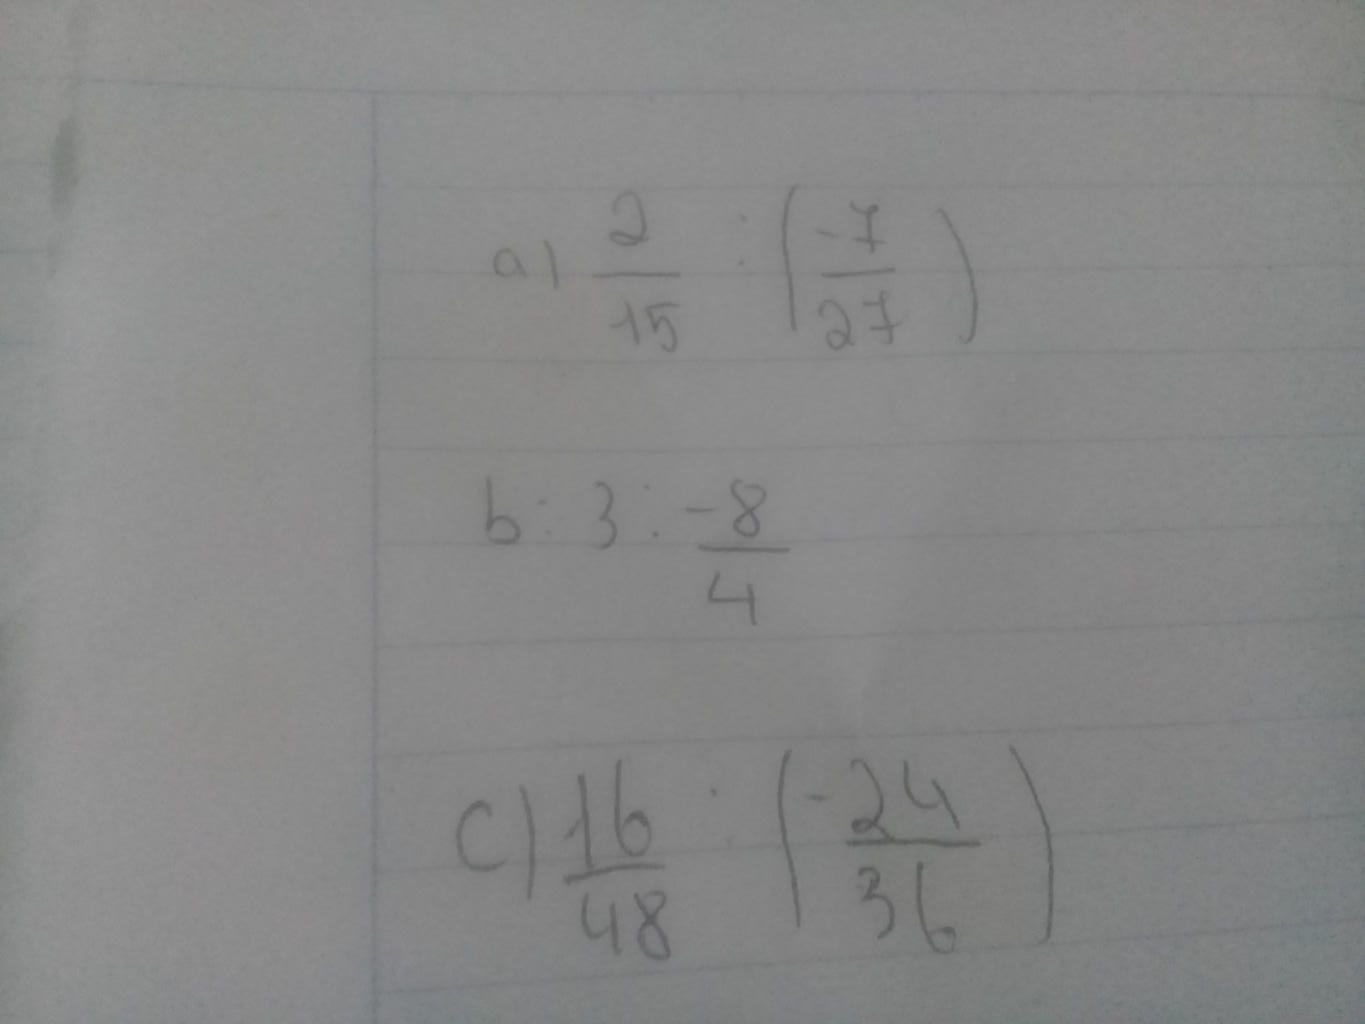 a) 2/15 : (-7/27)
b: 3: -8/4
c) 16/48 : (-24/36)